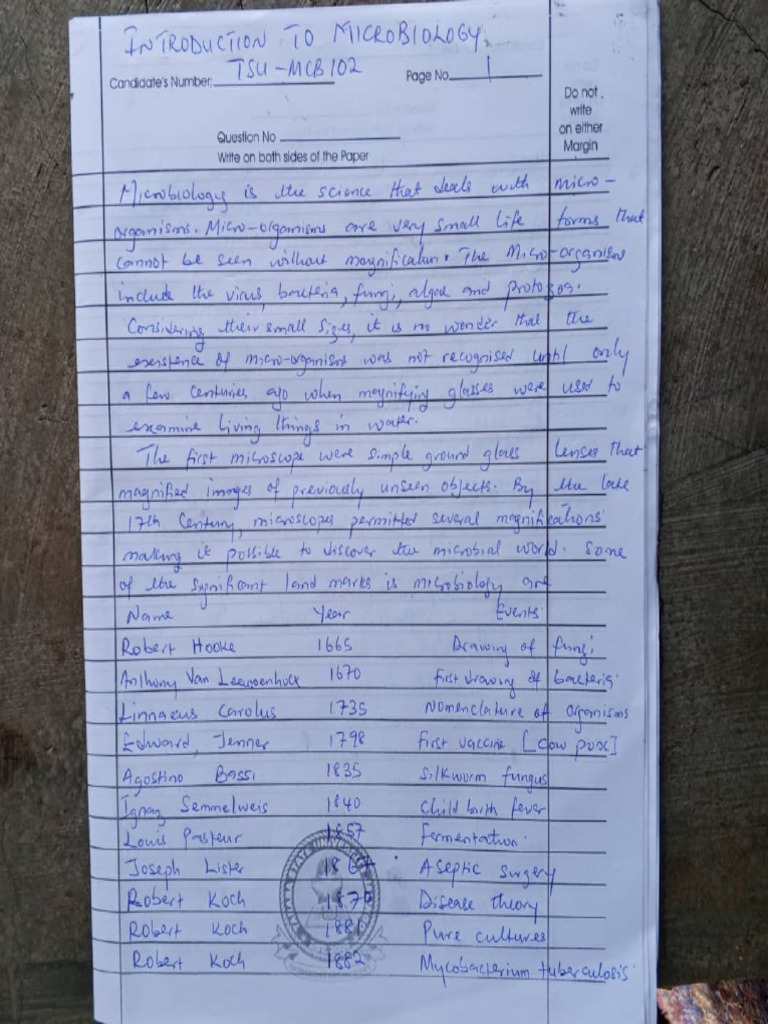 INTRODUCTION TO MICROBIOLOGY
Candidate's Number: TSU-MCB102 Page No. 1
Do not
write
on either
Margin
Question No
Write on both sides of the Paper
Microbiology is the science that deals with micro-
organisms. Micro-organisms are very small life forms that
cannot be seen without magnification. The Micro-organism
include the virus, bacteria, fungi, algae and protozoa.
Considering their small sizes, it is no wonder that the
existence of micro-organism was not recognised until only
a few centuries ago when magnifying glasses were used to
examine living things in water.
The first microscope were simple ground glass lenses that
magnified images of previously unseen objects. By the late
17th Century, microscopes permitted several magnifications
making it possible to discover the microbial world. Some
of the significant land marks is microbiology are
Name Year Events
Robert Hooke 1665 Drawing of fungi
Anthony Van Leewoenhock 1670 first drawing of bacteria
Linnaeus Carolus 1735 Nomenclature of organisms
Edward, Jenner 1798 First vaccine [cow pox]
Agostino Bassi 1835 Silkworm fungus
Ignaz Semmelweis 1840 Child birth fever
Louis Pasteur 1857 Fermentation
Joseph Lister 1867 Aseptic surgery
Robert Koch 1870 Disease theory
Robert Koch 1881 Pure cultures
Robert Koch 1882 Mycobacterium tuberculosis